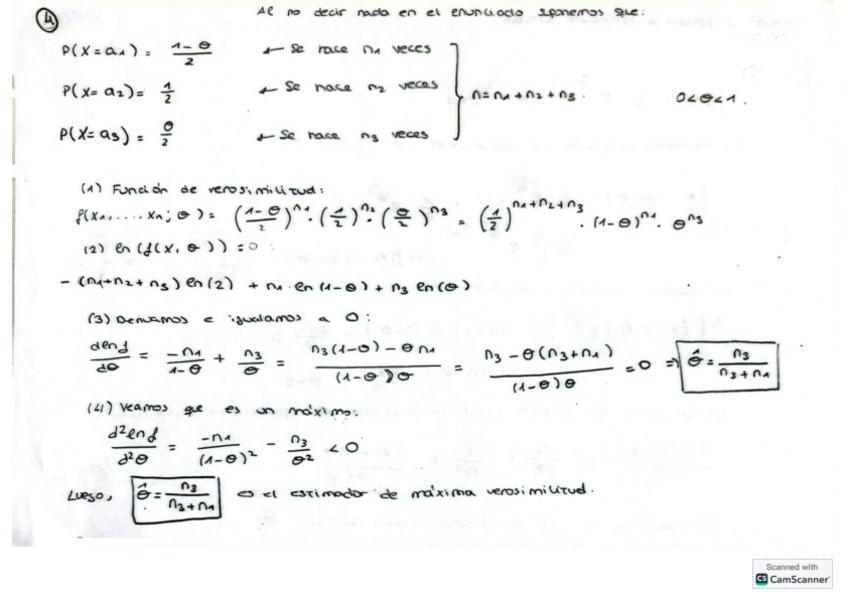 4
Al no decir nada en el enunciado suponemos que:
P(X=a₁) = (1-θ)/2 ← Se hace n₁ veces
P(X=a₂) = 1/2 ← Se hace n₂ veces
n=n₁+n₂+n₃. 0<θ<1.
P(X=a₃) = θ/2 ← Se hace n₃ veces
(1) Función de verosimilitud:
f(x₁,...,xₙ; θ) = ((1-θ)/2)^n₁ · (1/2)^n₂ · (θ/2)^n₃ = (1/2)^(n₁+n₂+n₃) · (1-θ)^n₁ · θ^n₃
(2) ln(f(x, θ)) = 0
- (n₁+n₂+n₃) ln(2) + n₁ · ln(1-θ) + n₃ ln(θ)
(3) Derivamos e igualamos a 0:
dlnf/dθ = -n₁/(1-θ) + n₃/θ = (n₃(1-θ) - θn₁)/((1-θ)θ) = (n₃ - θ(n₃+n₁))/((1-θ)θ) = 0 ⇒ θ̂ = n₃/(n₃+n₁)
(4) Veamos que es un máximo:
d²lnf/d²θ = -n₁/(1-θ)² - n₃/θ² < 0
Luego, θ̂ = n₃/(n₃+n₁) es el estimador de máxima verosimilitud.
Scanned with
CS CamScanner